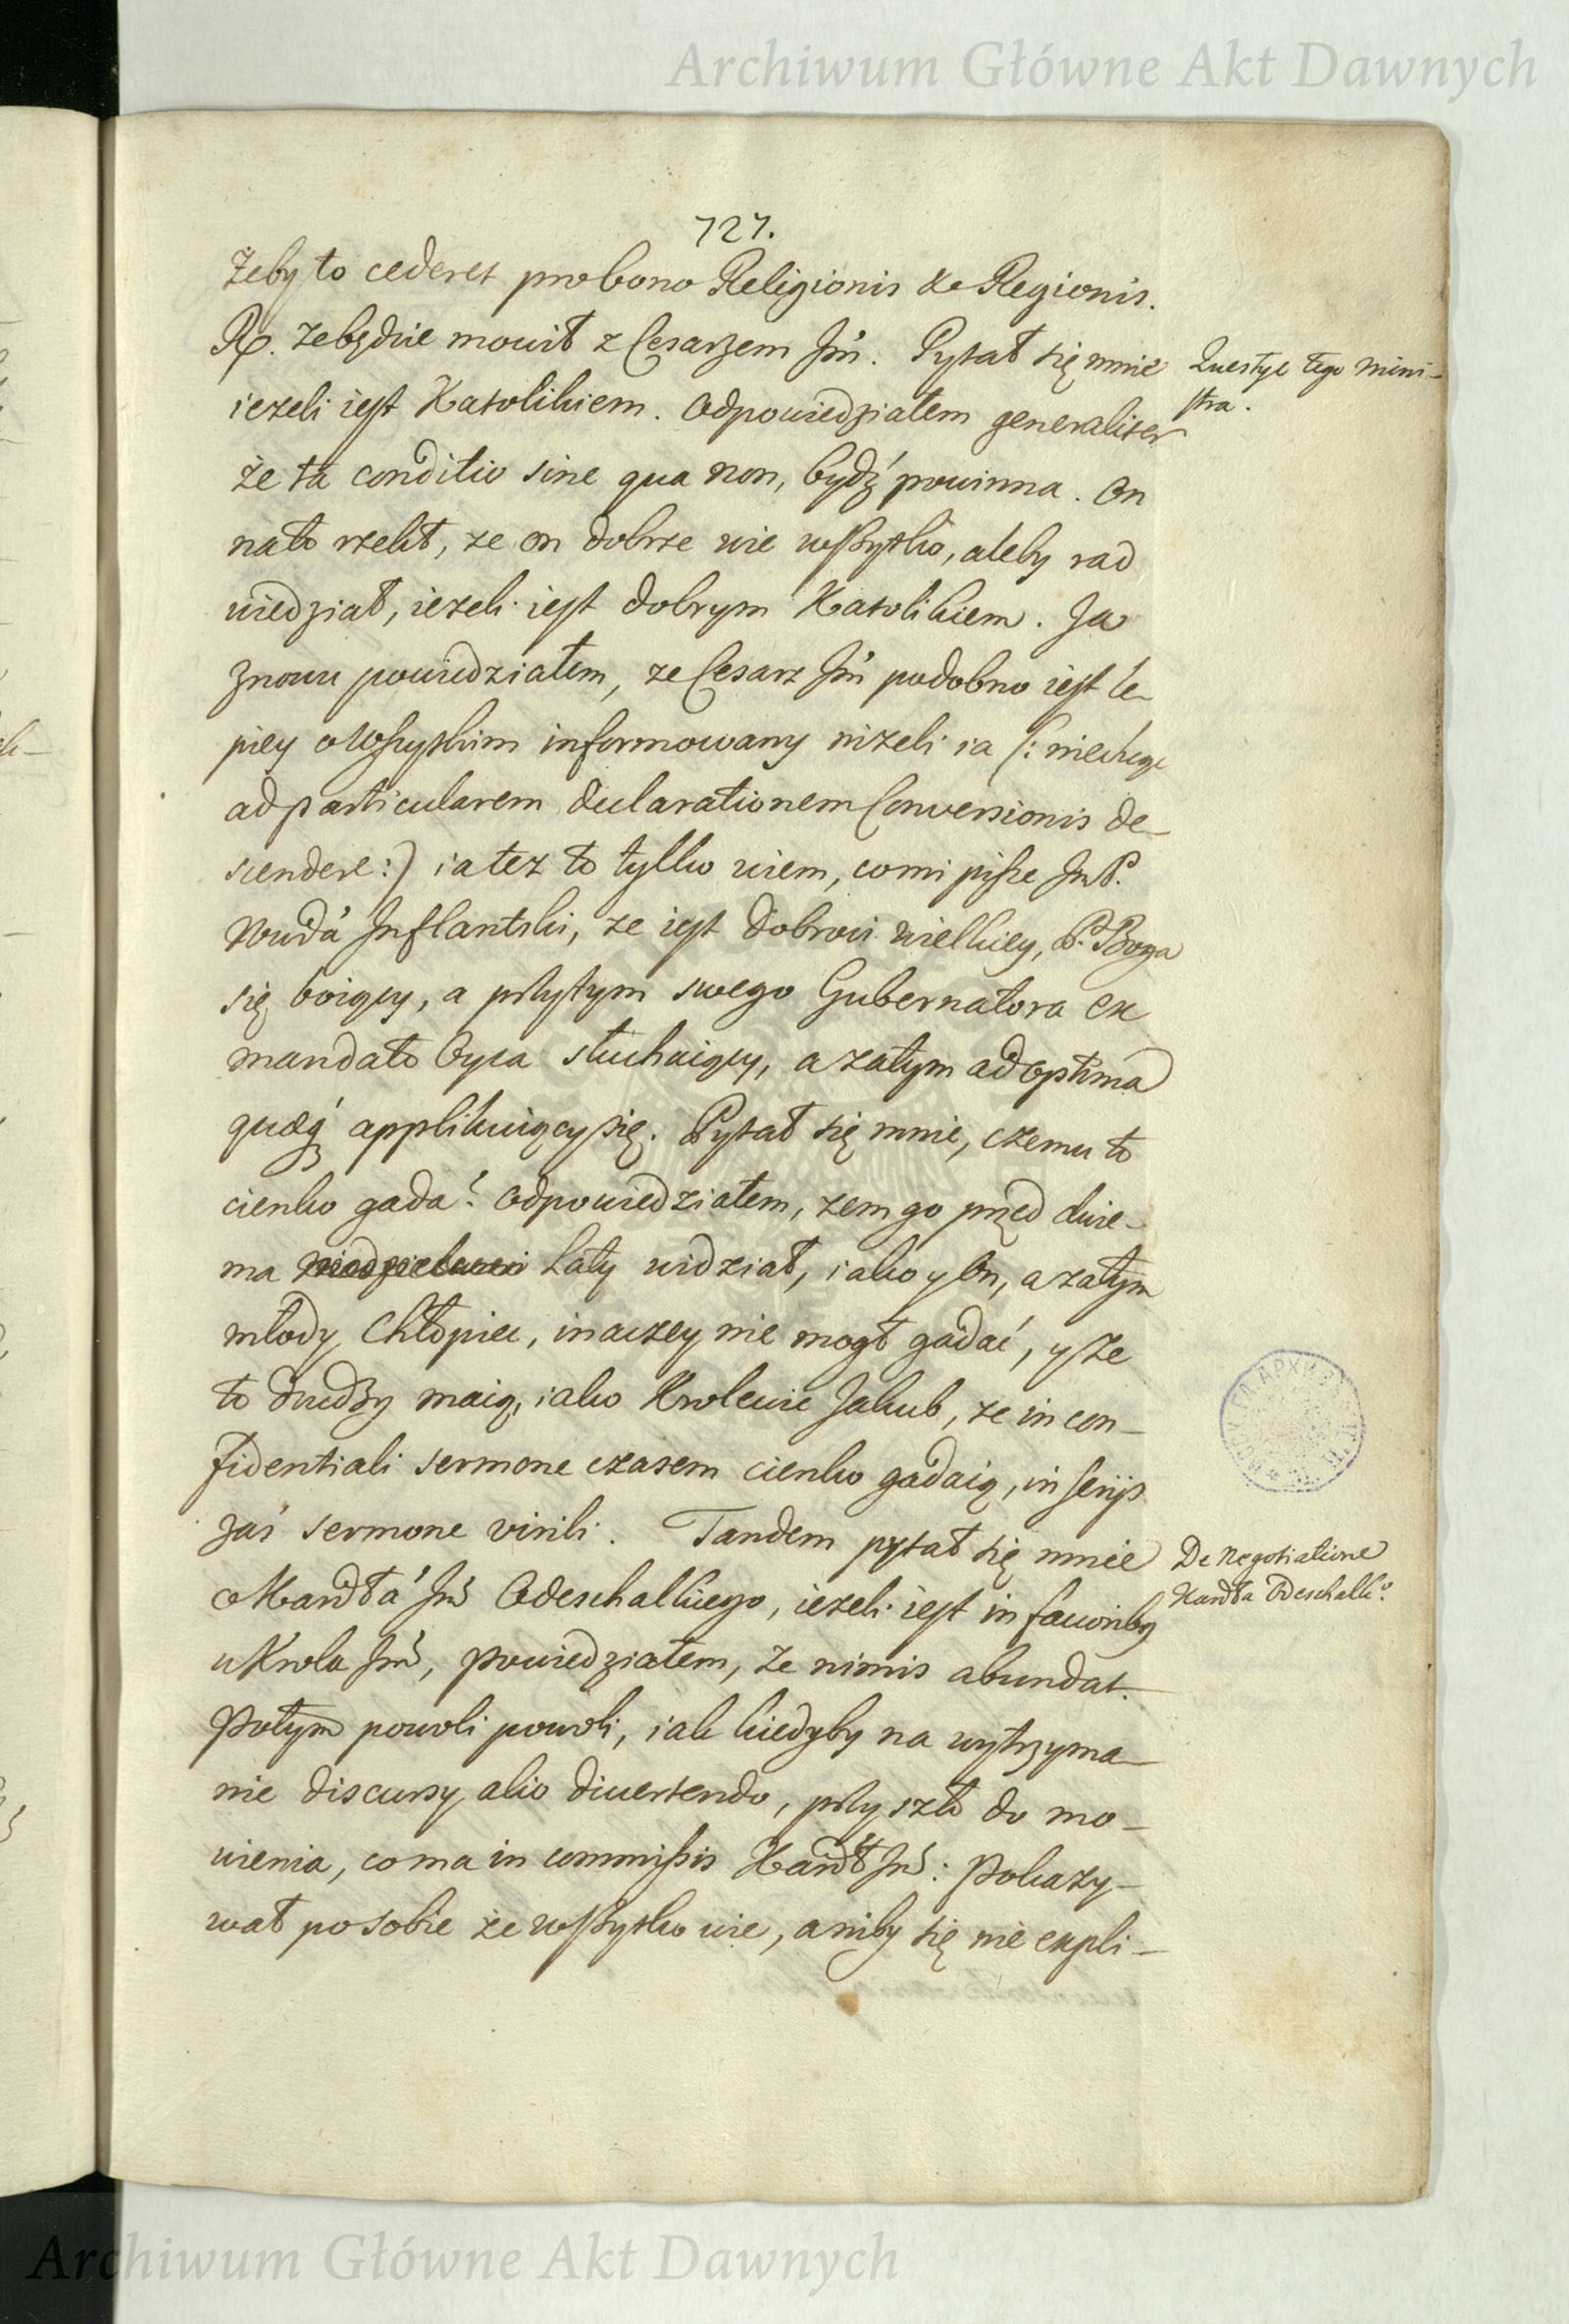 Archiwum Główne Akt Dawnych
727.
żeby to cederet pro bono Religionis & Regionis.
Rp. że będzie mowił z Cesarzem Jm̃. Pytał się mnie
Questye tego mini-
stra.
ieżeli iest Katolikiem. Odpowiedziałem generaliter
że ta conditio sine qua non, bydź powinna. On
nato rzekł, ze on dobrze wie wszystko, aleby rad
wiedział, ieżeli iest dobrym Katolikiem. Ja
znowu powiedziałem, ze Cesarz Jm̃ podobno iest le-
piey o wszystkim informowany niżeli ia (: niechcąc
ad particularem declarationem Conversionis de-
scendere :) ia tez to tylko wiem, co mi pisze Jm P.
Wwda Inflantski, ze iest dobroci wielkiey, P. Boga
się boiący, a przytym swego Gubernatora ex
mandato Oyca słuchaiący, a zatym ad optima
quæq; applikuiący się. Pytał się mnie, czemu to
cienko gada? Odpowiedziałem, zem go przed dwie-
ma laty widział, iako y On, a zatym
młody Chłopiec, inaczey nie mogł gadać, y że
to drudzy maią, iako Krolewic Jakub, ze in con-
fidentiali sermone czasem cienko gadaią, in serijs
zaś sermone virili. Tandem pytał się mnie
De Negotiatione
Kardła Odeschalki?
o Kardła Jm̃ Odeschalkiego, ieżeli iest in favoribq
u Krola Jm̃, powiedziałem, że nimis abundat.
Potym powoli powoli, iak kiedyby na wytrzyma-
nie discursy alio divertendo, przyszło do mo-
wienia, co ma in commissis Kardł Jm̃: Pokazy-
wał po sobie że wszystko wie, aniby się nie expli-
Archiwum Główne Akt Dawnych